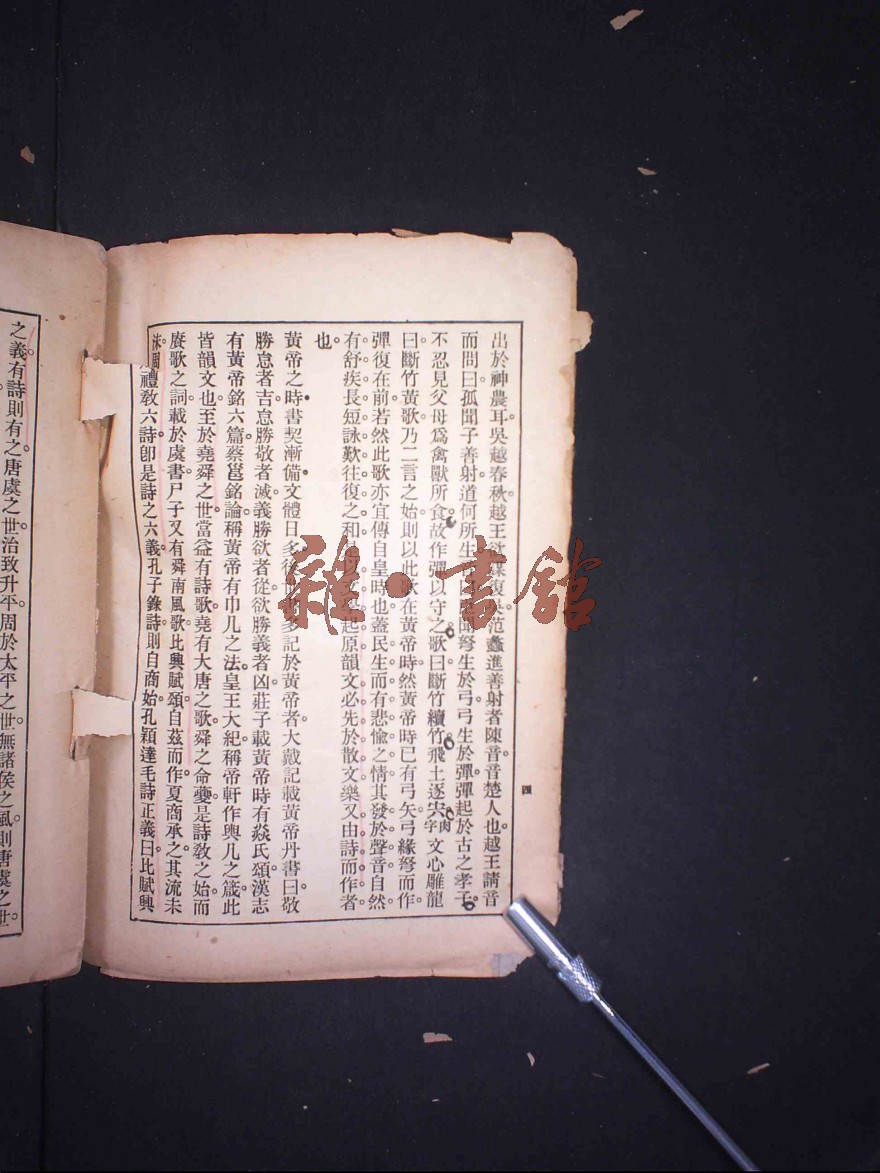 出於神農耳。吳越春秋。越王欲謀復吳。范蠡進善射者陳音。音楚人也。越王請音
而問曰。孤聞子善射。道何所生。音曰。臣聞弩生於弓。弓生於彈。彈起於古之孝子。
不忍見父母爲禽獸所食。故作彈以守之。歌曰。斷竹續竹。飛土逐宍。肉字文心雕龍
曰。斷竹黃歌。乃二言之始。則以此歌在黃帝時。然黃帝時已有弓矢。弓緣弩而作。
彈復在前。若然。此歌亦宜傳自皇時也。蓋民生而有悲愉之情。其發於聲音。自然
有舒疾長短詠歎往復之和。是以文學起原。韻文必先於散文。樂又由詩而作者
也。
黃帝之時。書契漸備。文體日多。後世書多記於黃帝者。大戴記載黃帝丹書曰。敬
勝怠者吉。怠勝敬者滅。義勝欲者從。欲勝義者凶。莊子載黃帝時有焱氏頌。漢志
有黃帝銘六篇。蔡邕銘論。稱黃帝有巾几之法。皇王大紀。稱帝軒作輿几之箴。此
皆韻文也。至於堯舜之世。當益有詩歌。堯有大唐之歌。舜之命夔。是詩敎之始。而
賡歌之詞。載於虞書。尸子又有舜南風歌。比興賦頌。自茲而作。夏商承之。其流未
沬。周禮敎六詩。卽是詩之六義。孔子錄詩。則自商始。孔穎達毛詩正義曰。比賦興
之義。有詩則有之。唐虞之世。治致升平。周於太平之世。無諸侯之風。則唐虞之世。
四
雜·書館